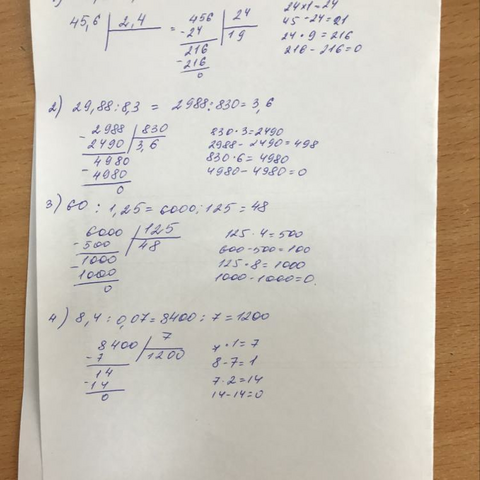 24×1=24
45,6 | 2,4 = 456 | 24
45-24=21
-24 | 19
24·9=216
216
216-216=0
-216
0
2) 29,88:8,3 = 2988:830=3,6
-2988 | 830
830·3=2490
2490 | 3,6
2988-2490=498
4980
830·6=4980
-4980
4980-4980=0
0
3) 60 : 1,25=6000:125=48
6000 | 125
125·4=500
-500 | 48
600-500=100
-1000
125·8=1000
1000
1000-1000=0.
0
4) 8,4:0,07=8400:7=1200
8400 | 7
7·1=7
-7 | 1200
8-7=1
14
7·2=14
-14
14-14=0
0